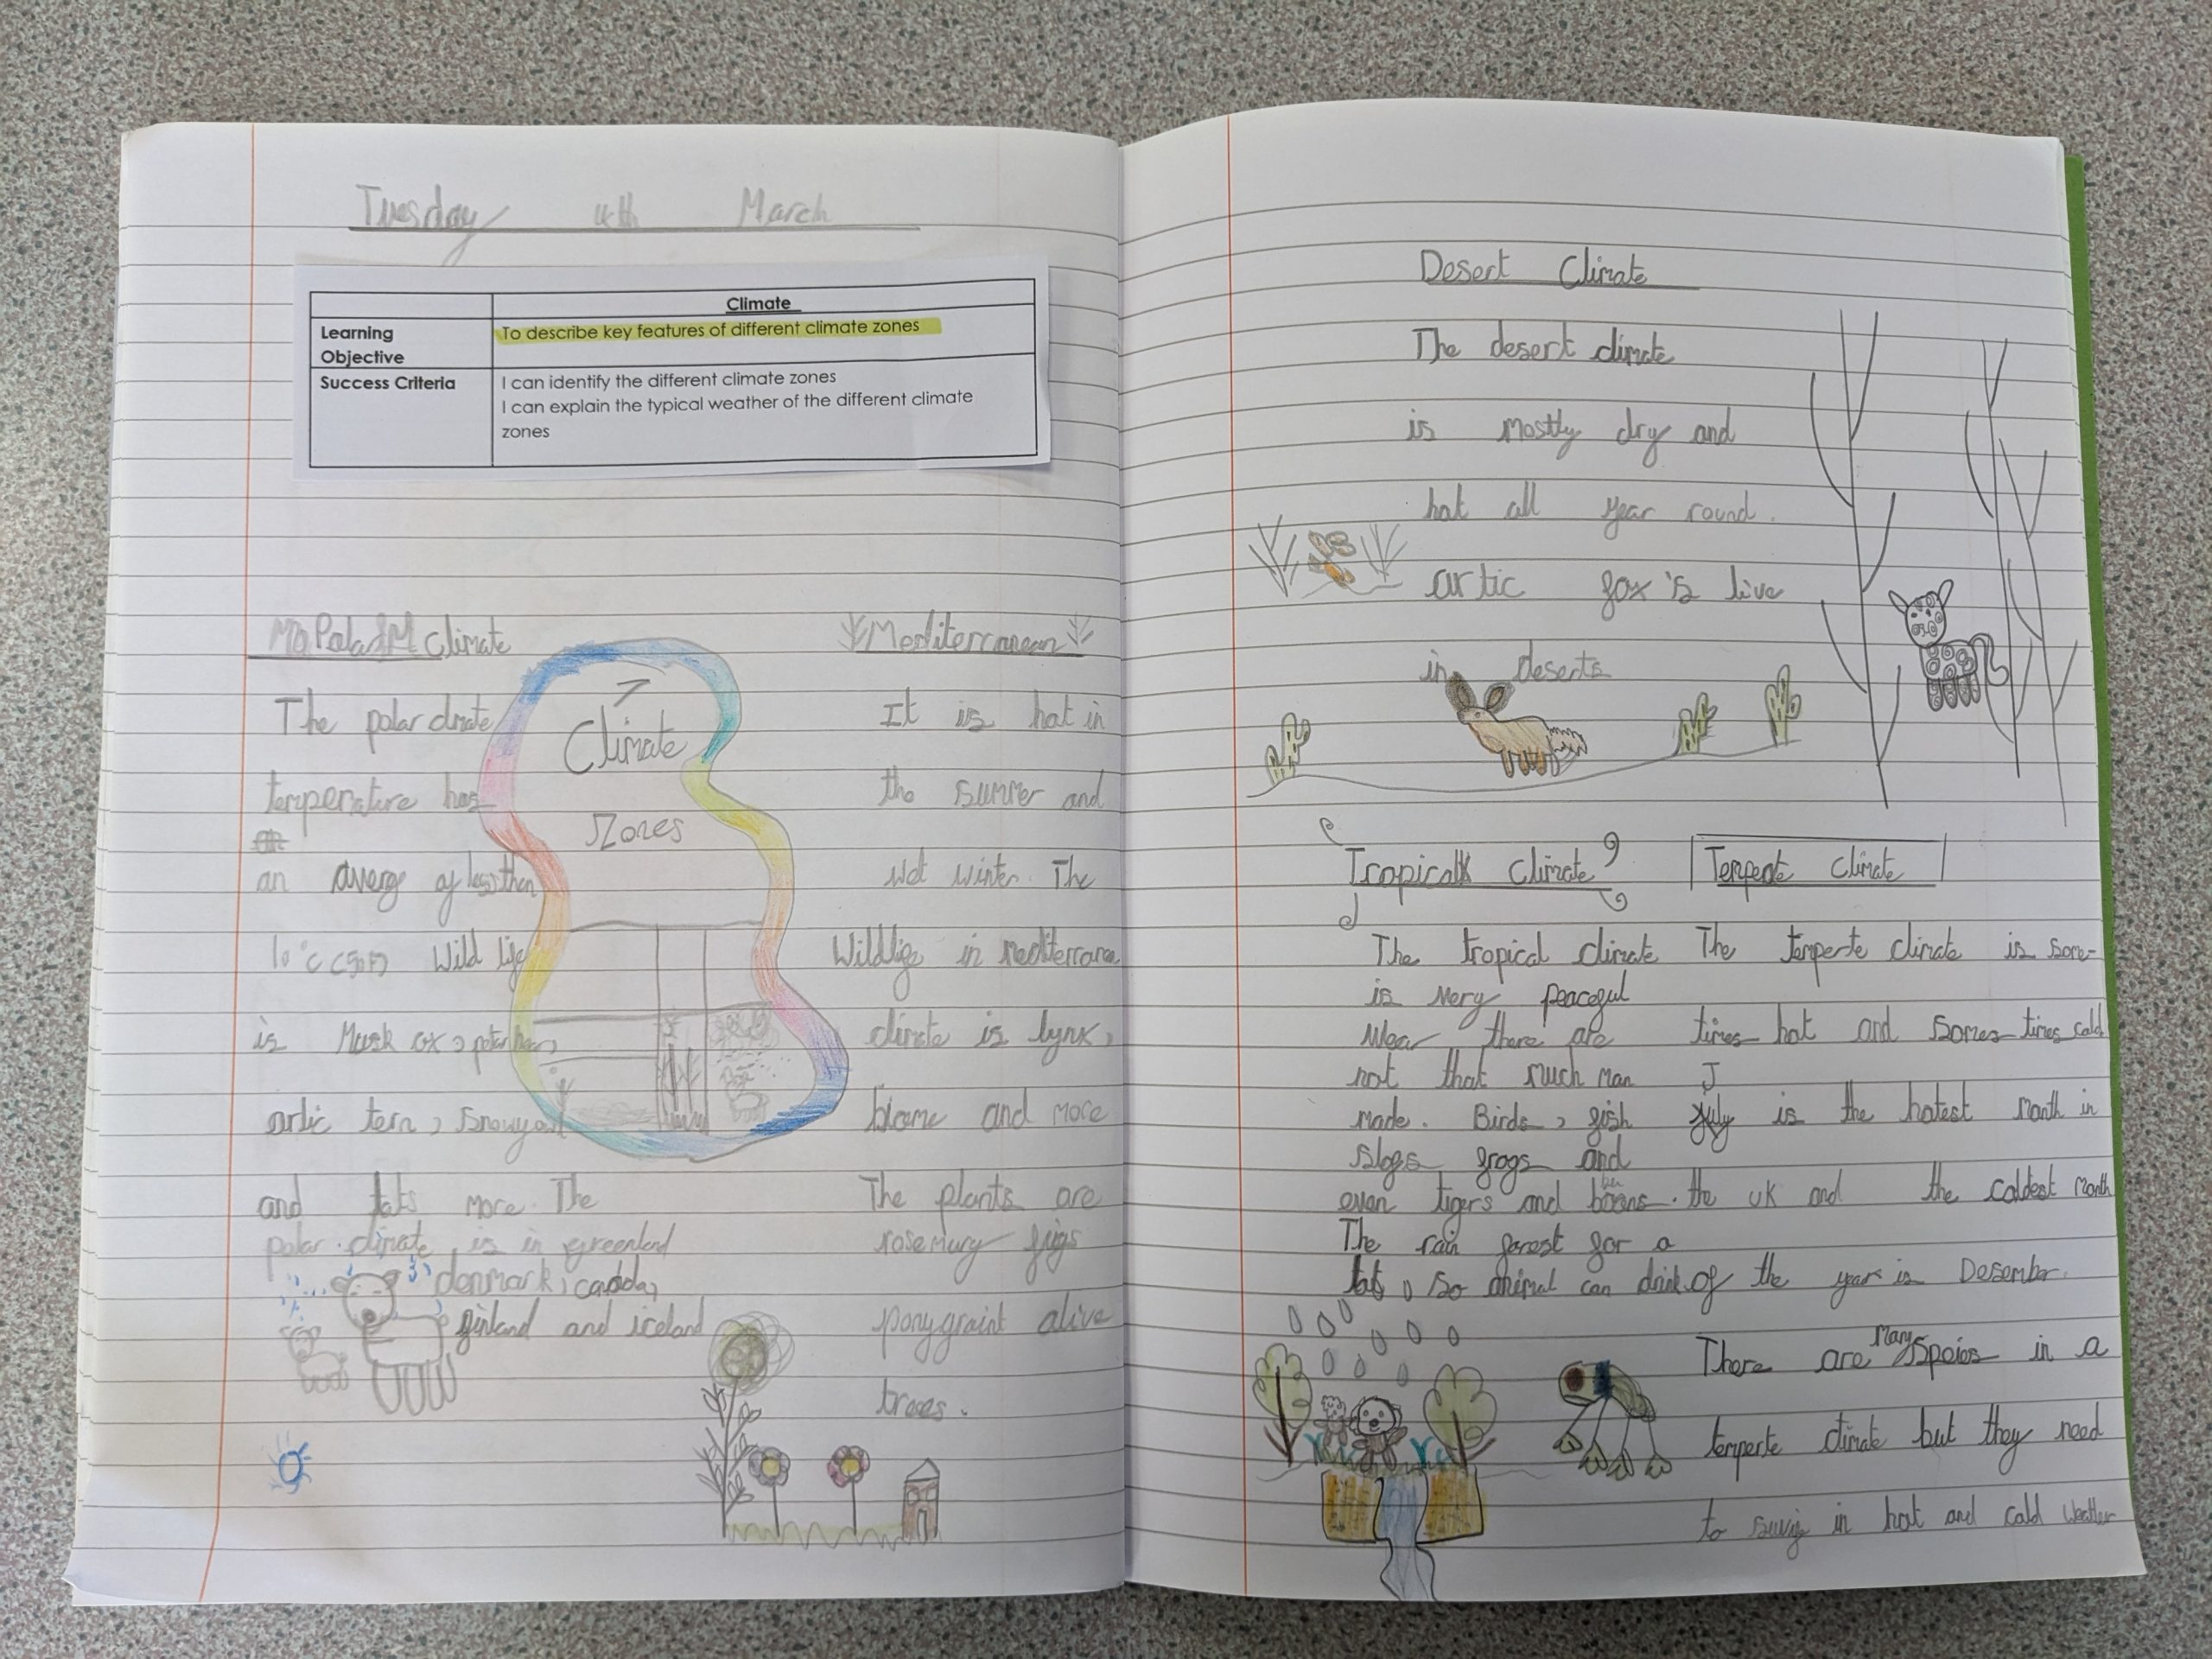 Tuesday 4th March
Climate
Learning Objective
To describe key features of different climate zones
Success Criteria
I can identify the different climate zones
I can explain the typical weather of the different climate
zones
Polar Climate
The polar climate
temperature has
an averg of less than
10°C (50F) Wild life
is Musk ox, polar bear,
artic tern, snowy owl
and more. The
polar climate is in greenland
denmark, cadda,
finland and iceland
Climate
Zones
Mediterranean
It is hot in
the summer and
wet winter. The
Wildlife in mediterranea
climate is lynx,
and more
The plants are
rosemury figs
ponygraint alive
trees.
Desert Climate
The desert climate
is mostly dry and
hot all year round.
artic fox's live
in deserts
Tropical Climate
The tropical climate
is very peaceful
wear there are
not that much man
made. Birds, fish
slogs frogs and
even tigers and
The rain forest for a
so animal can drink
Temperate Climate
The temperte climate is some-
times hot and somes-times cold
July is the hotest month in
the uk and the coldest month
of the year is Desember.
There are many Speies in a
temperte climate but they need
to in hot and cold weather